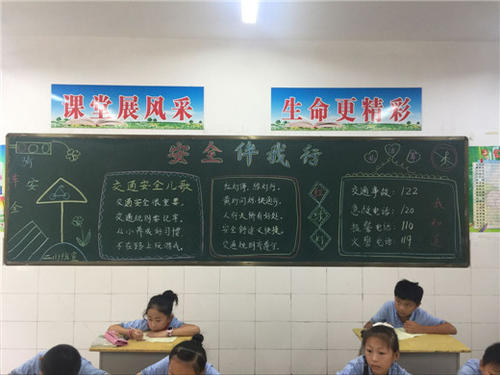 课堂展风采
生命更精彩
安全伴我行
交通安全儿歌
交通安全很重要,
交通规则要记牢,
从小养成好习惯
不在路上玩游戏。
红灯停,绿灯行,
黄灯闪烁快通行,
人行天桥有好处,
安全舒适又快捷,
红绿灯
交通事故:122
急救电话:120
报警电话:110
火警电话:119
我知道